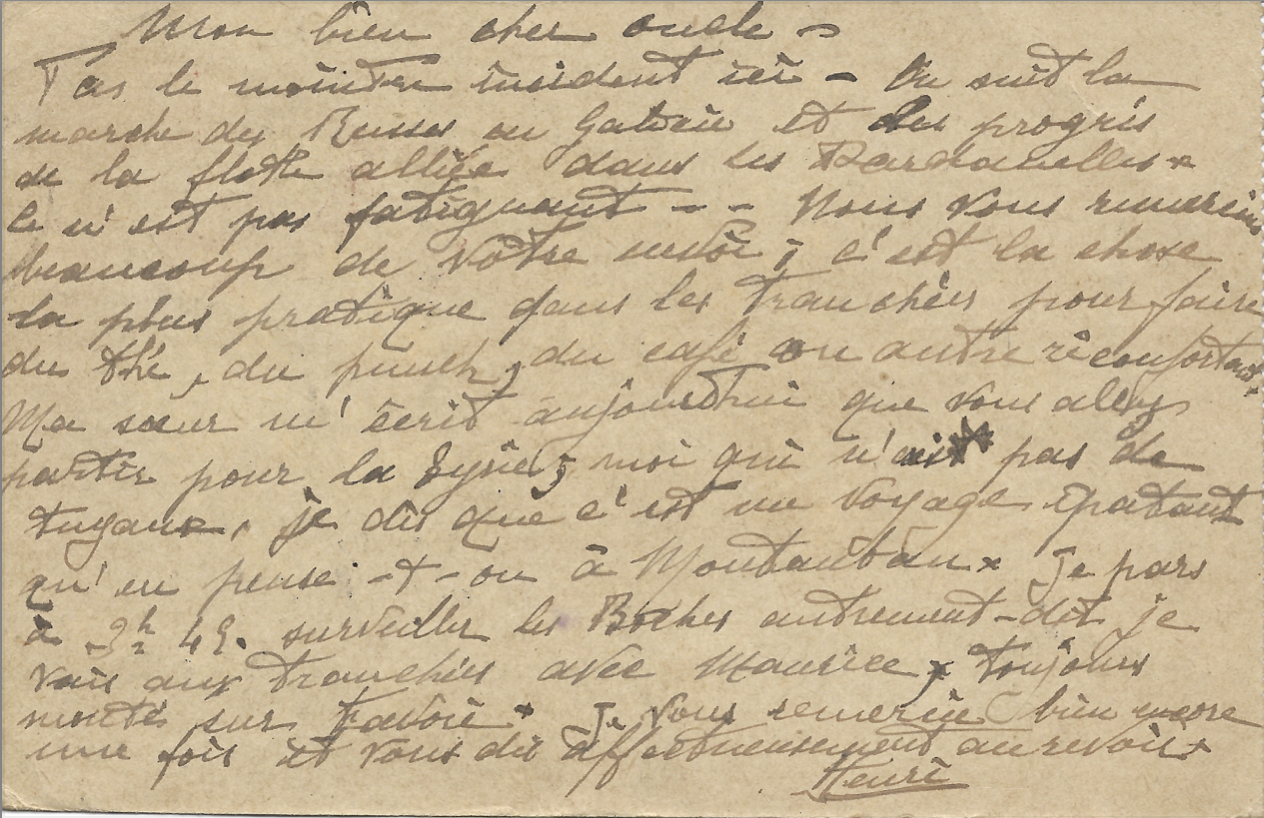 Mon bien cher oncle -
Pas le moindre incident ici - On suit la
marche des Russes en Galicie et des progrès
de la flotte alliée dans les Dardanelles.
Ce n'est pas fatiguant - - Nous vous remercions
beaucoup de vôtre envoi ; c'est la chose
la plus pratique dans les tranchées pour faire
du thé, du punch, du café ou autre réconfortant.
Ma sœur m'écrit aujourd'hui que vous allez
partir pour la ; moi qui n'ait pas de
tuyaux, je dis que c'est un voyage épatant
qu'en pense-t-on à Montauban. Je pars
à 3h 45. surveiller les Boches autrement-dit je
vais aux tranchées avec Maurice, toujours
montés sur Favori. Je vous remercie bien encore
une fois et vous dis affectueusement au revoir.
Henri